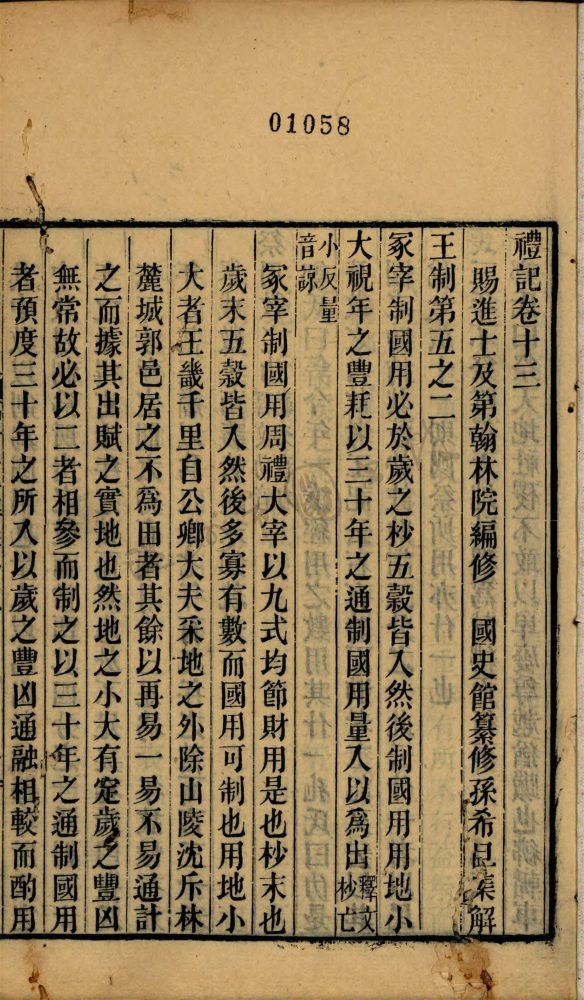 01058
禮記卷十三
賜進士及第翰林院編修 國史館纂修孫希旦集解
王制第五之二
冢宰制國用必於歲之杪五穀皆入然後制國用用地小
大視年之豐耗以三十年之通制國用量入以爲出釋文杪亡
小反量音諒
冢宰制國用周禮大宰以九式均節財用是也杪末也
歲末五穀皆入然後多寡有數而國用可制也用地小
大者王畿千里自公卿大夫采地之外除山陵沈斥林
麓城郭邑居之不爲田者其餘以再易一易不易通計
之而據其出賦之實地也然地之小大有定歲之豐凶
無常故必以二者相參而制之以三十年之通制國用
者預度三十年之所入以歲之豐凶通融相較而酌用